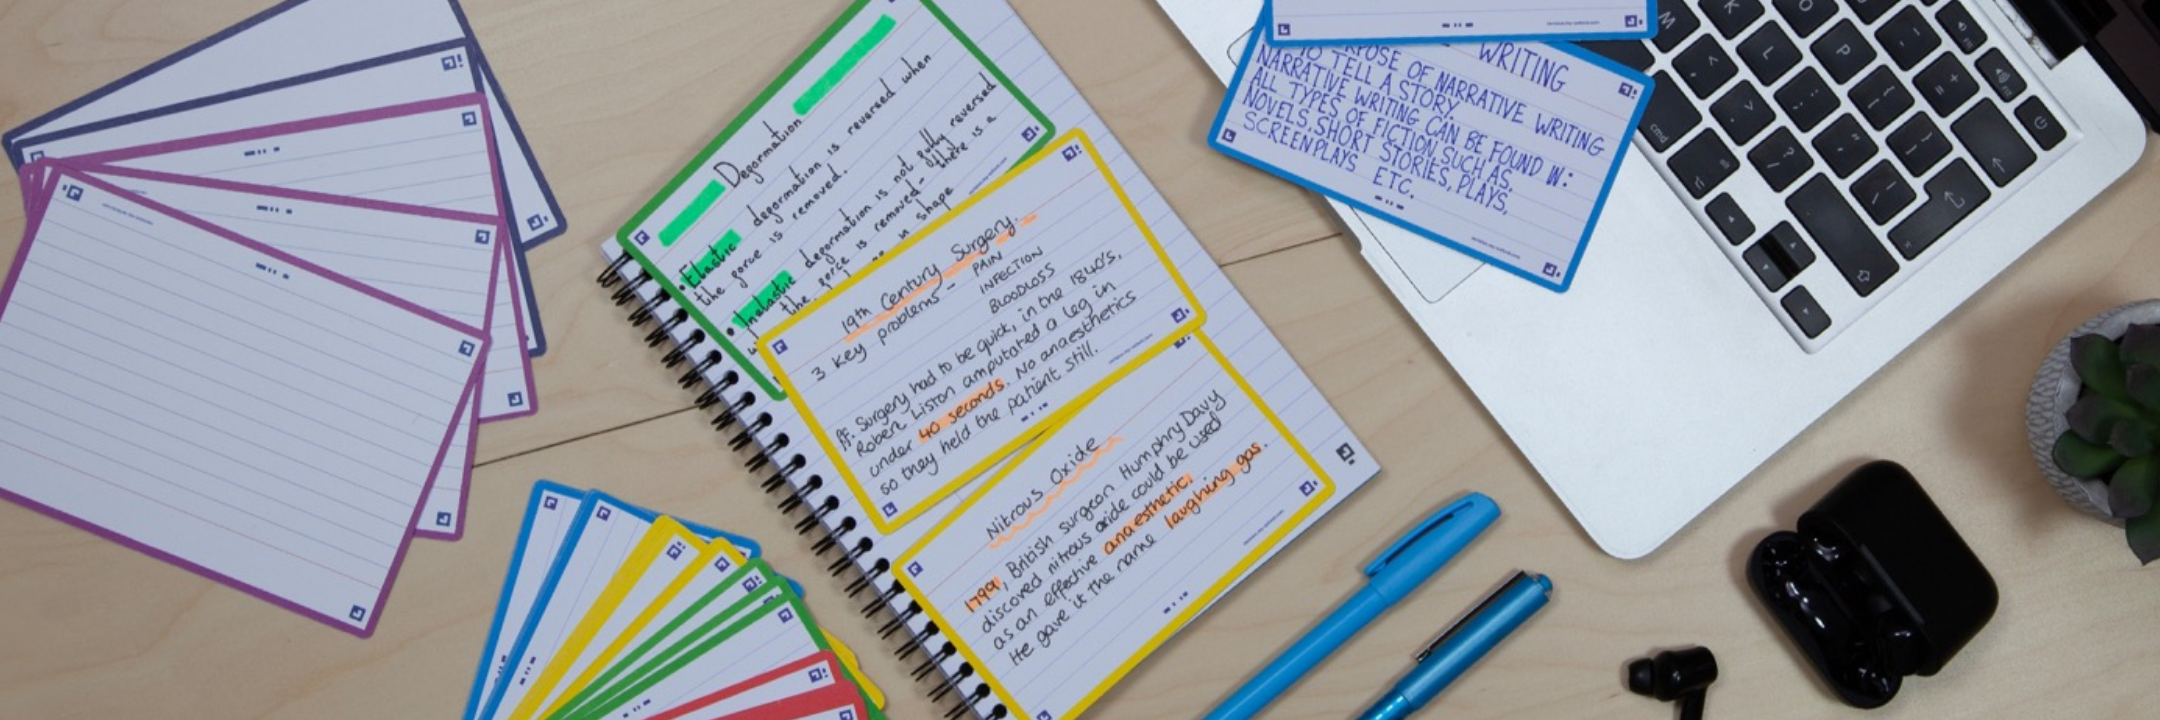 Deformation
• Elastic deformation is reversed when
the force is removed.
• Inelastic deformation is not fully reversed
the force is removed - there is a
in shape
19th Century Surgery.
3 key problems - PAIN
INFECTION
BLOODLOSS
Surgery had to be quick, in the 1840's,
Robert Liston amputated a leg in
under 40 seconds. No anaesthetics
so they held the patient still.
Nitrous Oxide
1799, British surgeon Humphry Davy
discovered nitrous oxide could be used
as an effective anaesthetic.
He gave it the name laughing gas.
WRITING
TO TELL A STORY.
OF NARRATIVE WRITING
NARRATIVE WRITING CAN BE FOUND IN:
ALL TYPES OF FICTION, SUCH AS,
NOVELS, SHORT STORIES, PLAYS,
SCREENPLAYS ETC.
M
K
L
P
cmd